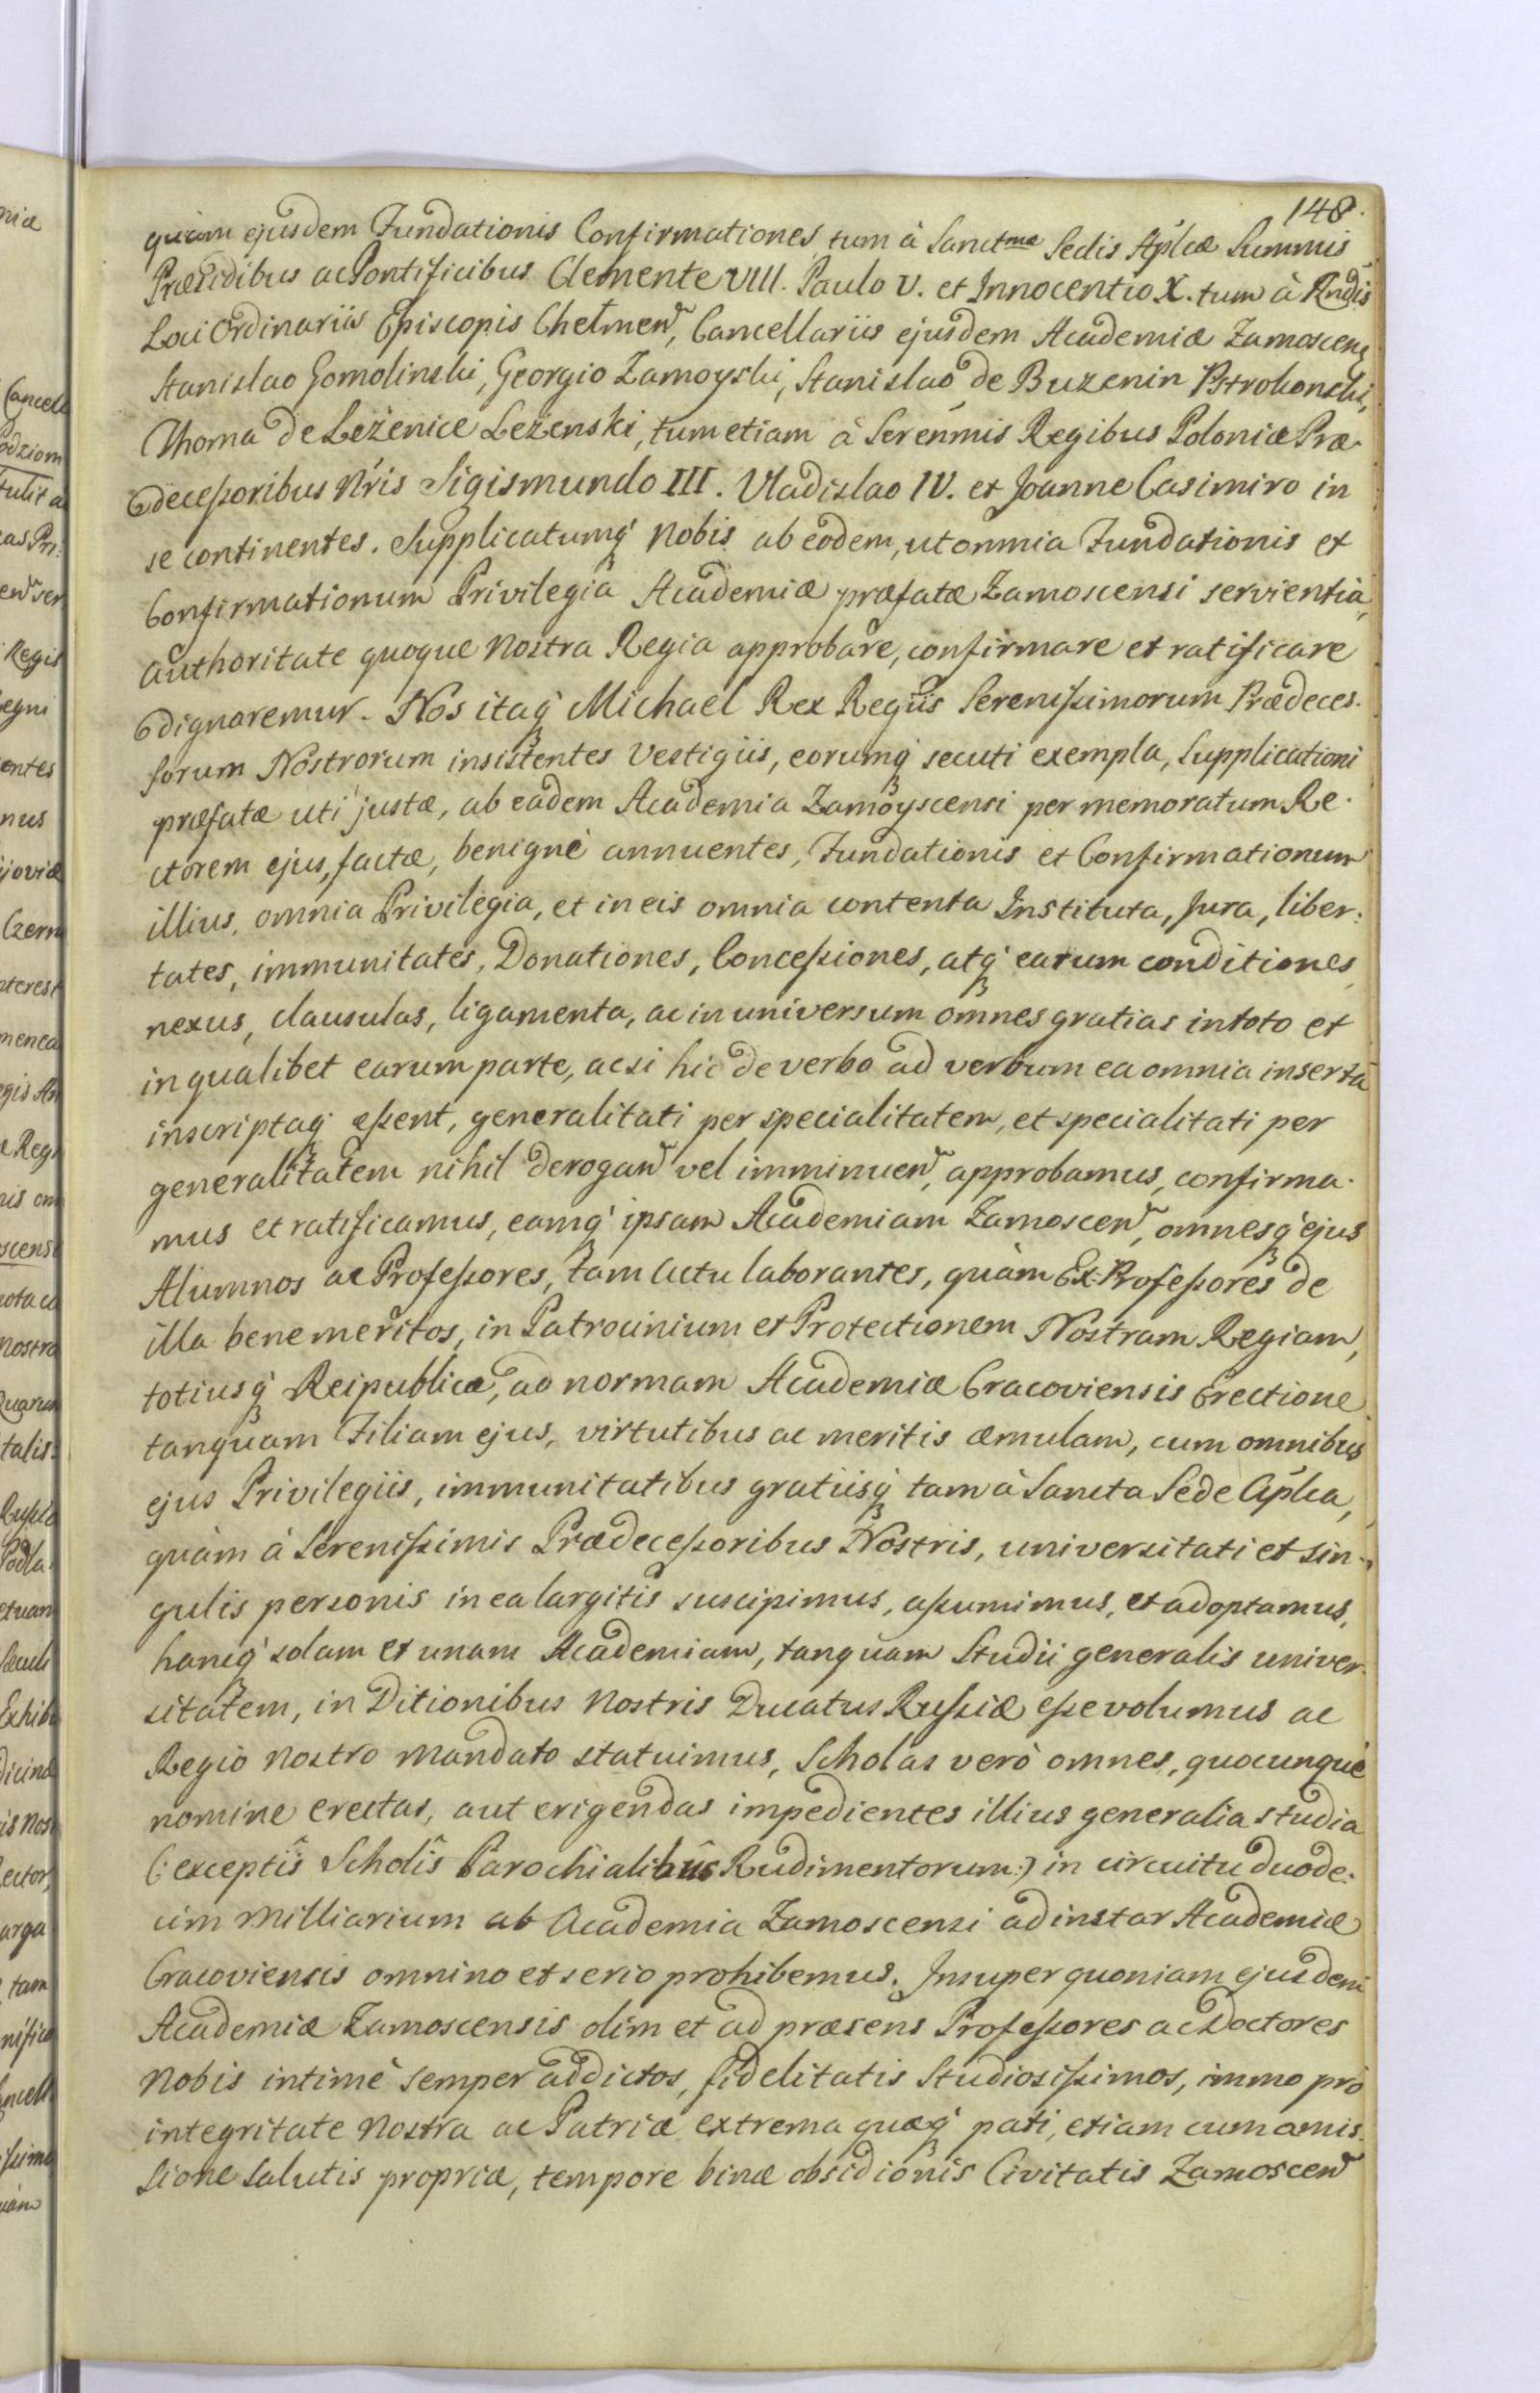 148.
quàm ejusdem Fundationis Confirmationes, tum à Sanctmæ Sedis Aplcæ Summis
Præsidibus ac Pontificibus Clemente VIII. Paulo V. et Innocentio X. tum à Rndis
Loci Ordinariis Episcopis Chełmen, Cancellariis ejusdem Academiæ Zamoscens
Stanislao Gomolinski, Georgio Zamoyski, Stanislao de Buzenin Pstrokonski,
Thoma de Leżenice Leżenski, tum etiam à Serenmis Regibus Poloniæ Præ-
decessoribus Nris Sigismundo III. Vladislao IV. et Joanne Casimiro in
se continentes. Supplicatumq nobis ab eodem, ut omnia Fundationis et
Confirmationum Privilegia Academiæ præfatæ Zamoscensi servientia,
authoritate quoque Nostra Regia approbare, confirmare et ratificare
dignaremur. Nos itaq Michael Rex Regiis Serenissimorum Prædeces-
sorum Nostrorum insistentes vestigiis, eorumq secuti exempla, supplicationi
præfatæ uti justæ, ab eadem Academia Zamoyscensi per memoratum Re-
ctorem ejus, factæ, benignè annuentes, Fundationis et Confirmationum
illius, omnia Privilegia, et in eis omnia contenta Instituta, Jura, liber:
tates, immunitates, Donationes, Concessiones, atq earum conditiones,
nexus, clausulas, ligamenta, ac in universum omnes gratias in toto et
in qualibet earum parte, ac si hic de verbo ad verbum ea omnia inserta
inscriptaq essent, generalitati per specialitatem, et specialitati per
generalitatem nihil derogan vel imminuen, approbamus, confirma-
mus et ratificamus, eamq ipsam Academiam Zamoscen, omnesq ejus
Alumnos ac Professores, tam actu laborantes, quàm Ex-Professores de
illa benemeritos, in Patrocinium et Protectionem Nostram Regiam,
totiusq Reipublicæ, ad normam Academiæ Cracoviensis Erectione
tanquam Filiam ejus, virtutibus ac meritis æmulam, cum omnibus
ejus Privilegiis, immunitatibus gratiisq tam à Sancta Sede Aplca,
quàm à Serenissimis Prædecessoribus Nostris, universitati et sin-
gulis personis in ea largitis suscipimus, assumimus, et adoptamus,
hancq solam et unam Academiam, tanquam Studii generalis univer-
sitatem, in Ditionibus Nostris Ducatus Russiæ esse volumus ac
Regio nostro mandato statuimus, Scholas verò omnes, quocunque
nomine erectas, aut erigendas impedientes illius generalia studia
(: exceptis Scholis Parochialibus Rudimentorum :) in circuitu duode:
cim milliarium ab Academia Zamoscensi ad instar Academiæ
Cracoviensis omnino et serio prohibemus. Insuper quoniam ejusdem
Academiæ Zamoscensis olim et ad præsens Professores ac Doctores
nobis intimè semper addictos, fidelitatis Studiosissimos, immo pro
integritate Nostra ac Patriæ extrema quæq pati, etiam cum amis-
sione salutis propriæ, tempore binæ obsidionis Civitatis Zamoscen